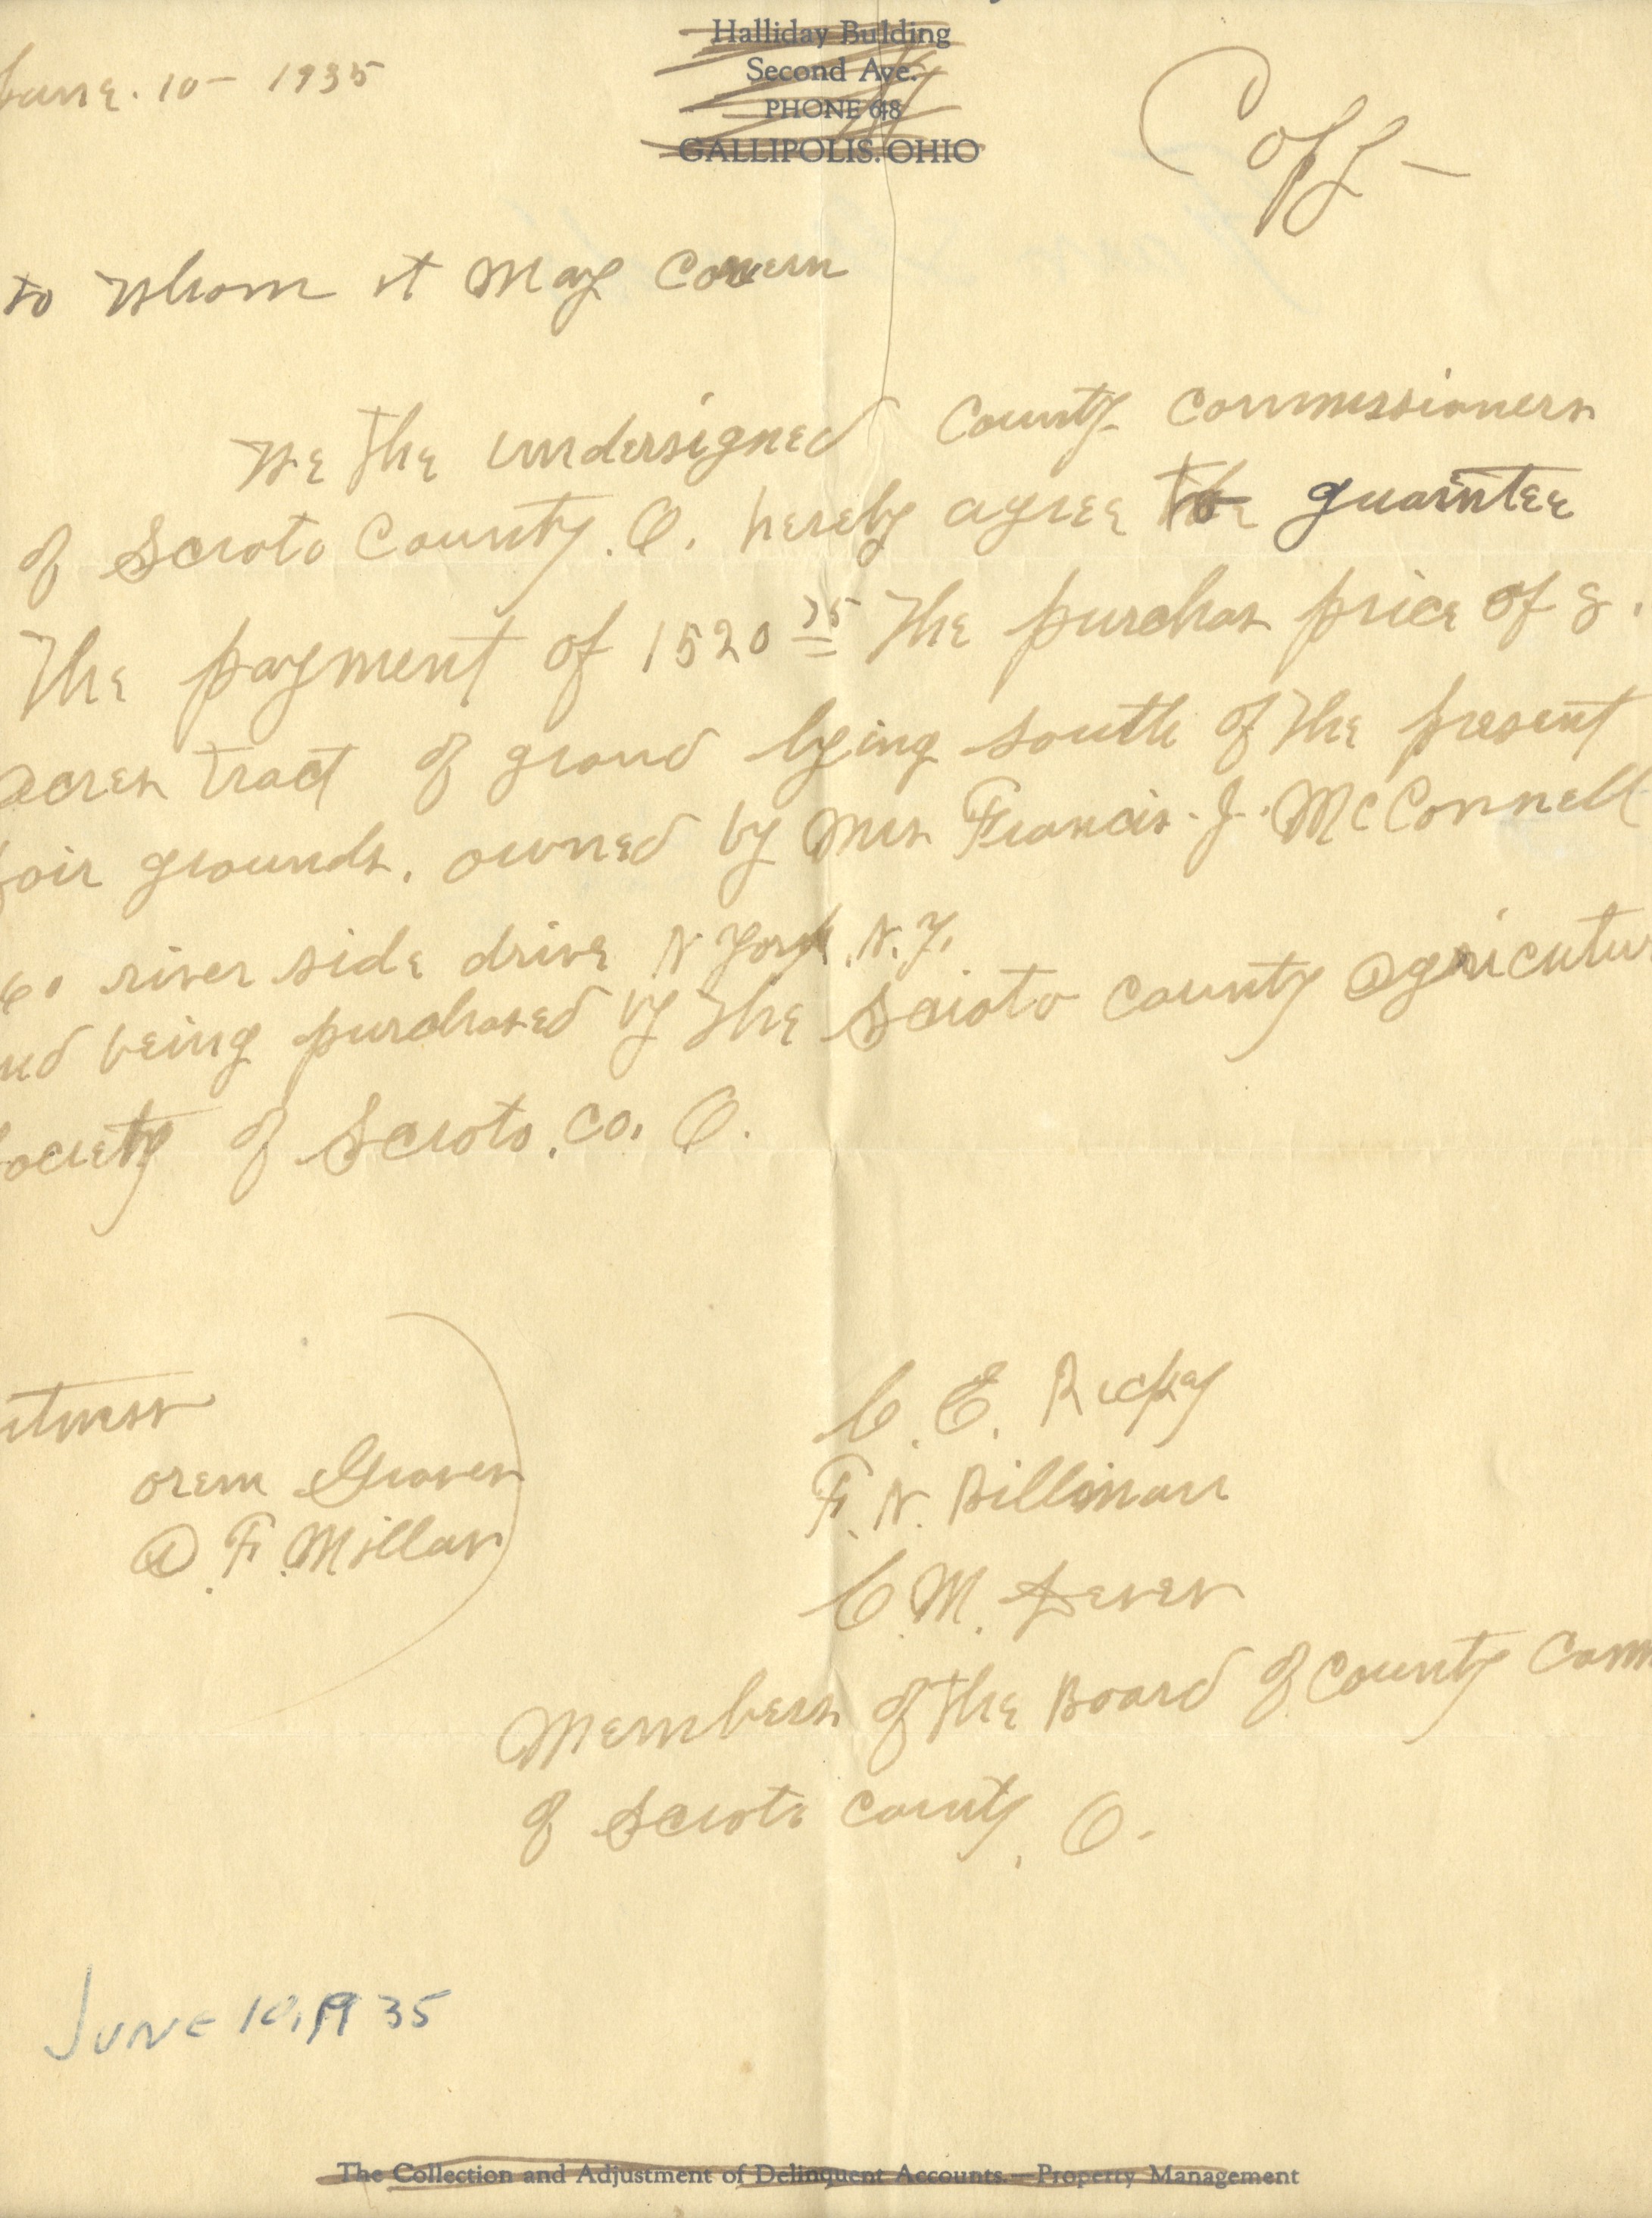 Halliday Building
Second Ave.
PHONE 618
GALLIPOLIS, OHIO
June. 10 - 1935
Copy -
to Whom it May Concern
We the undersigned County commissioners
of Scioto County. O. hereby agree to guarntee
The payment of 1520 75 The purchas price of 8.
acres tract of ground lying south of the present
fair grounds. owned by Mrs Francis. J. McConnell
river side drive N York. N. Y.
nd being purchased by the Scioto county agricutur
ociety of Scioto. Co. O.
itness
orem Graves
A. F. Millar
C. E.
F. N. Billman
C. M. Dever
Members of the Board of County Comm
of Scioto County, O.
JUNE 10, 1935
The Collection and Adjustment of Delinquent Accounts.—Property Management